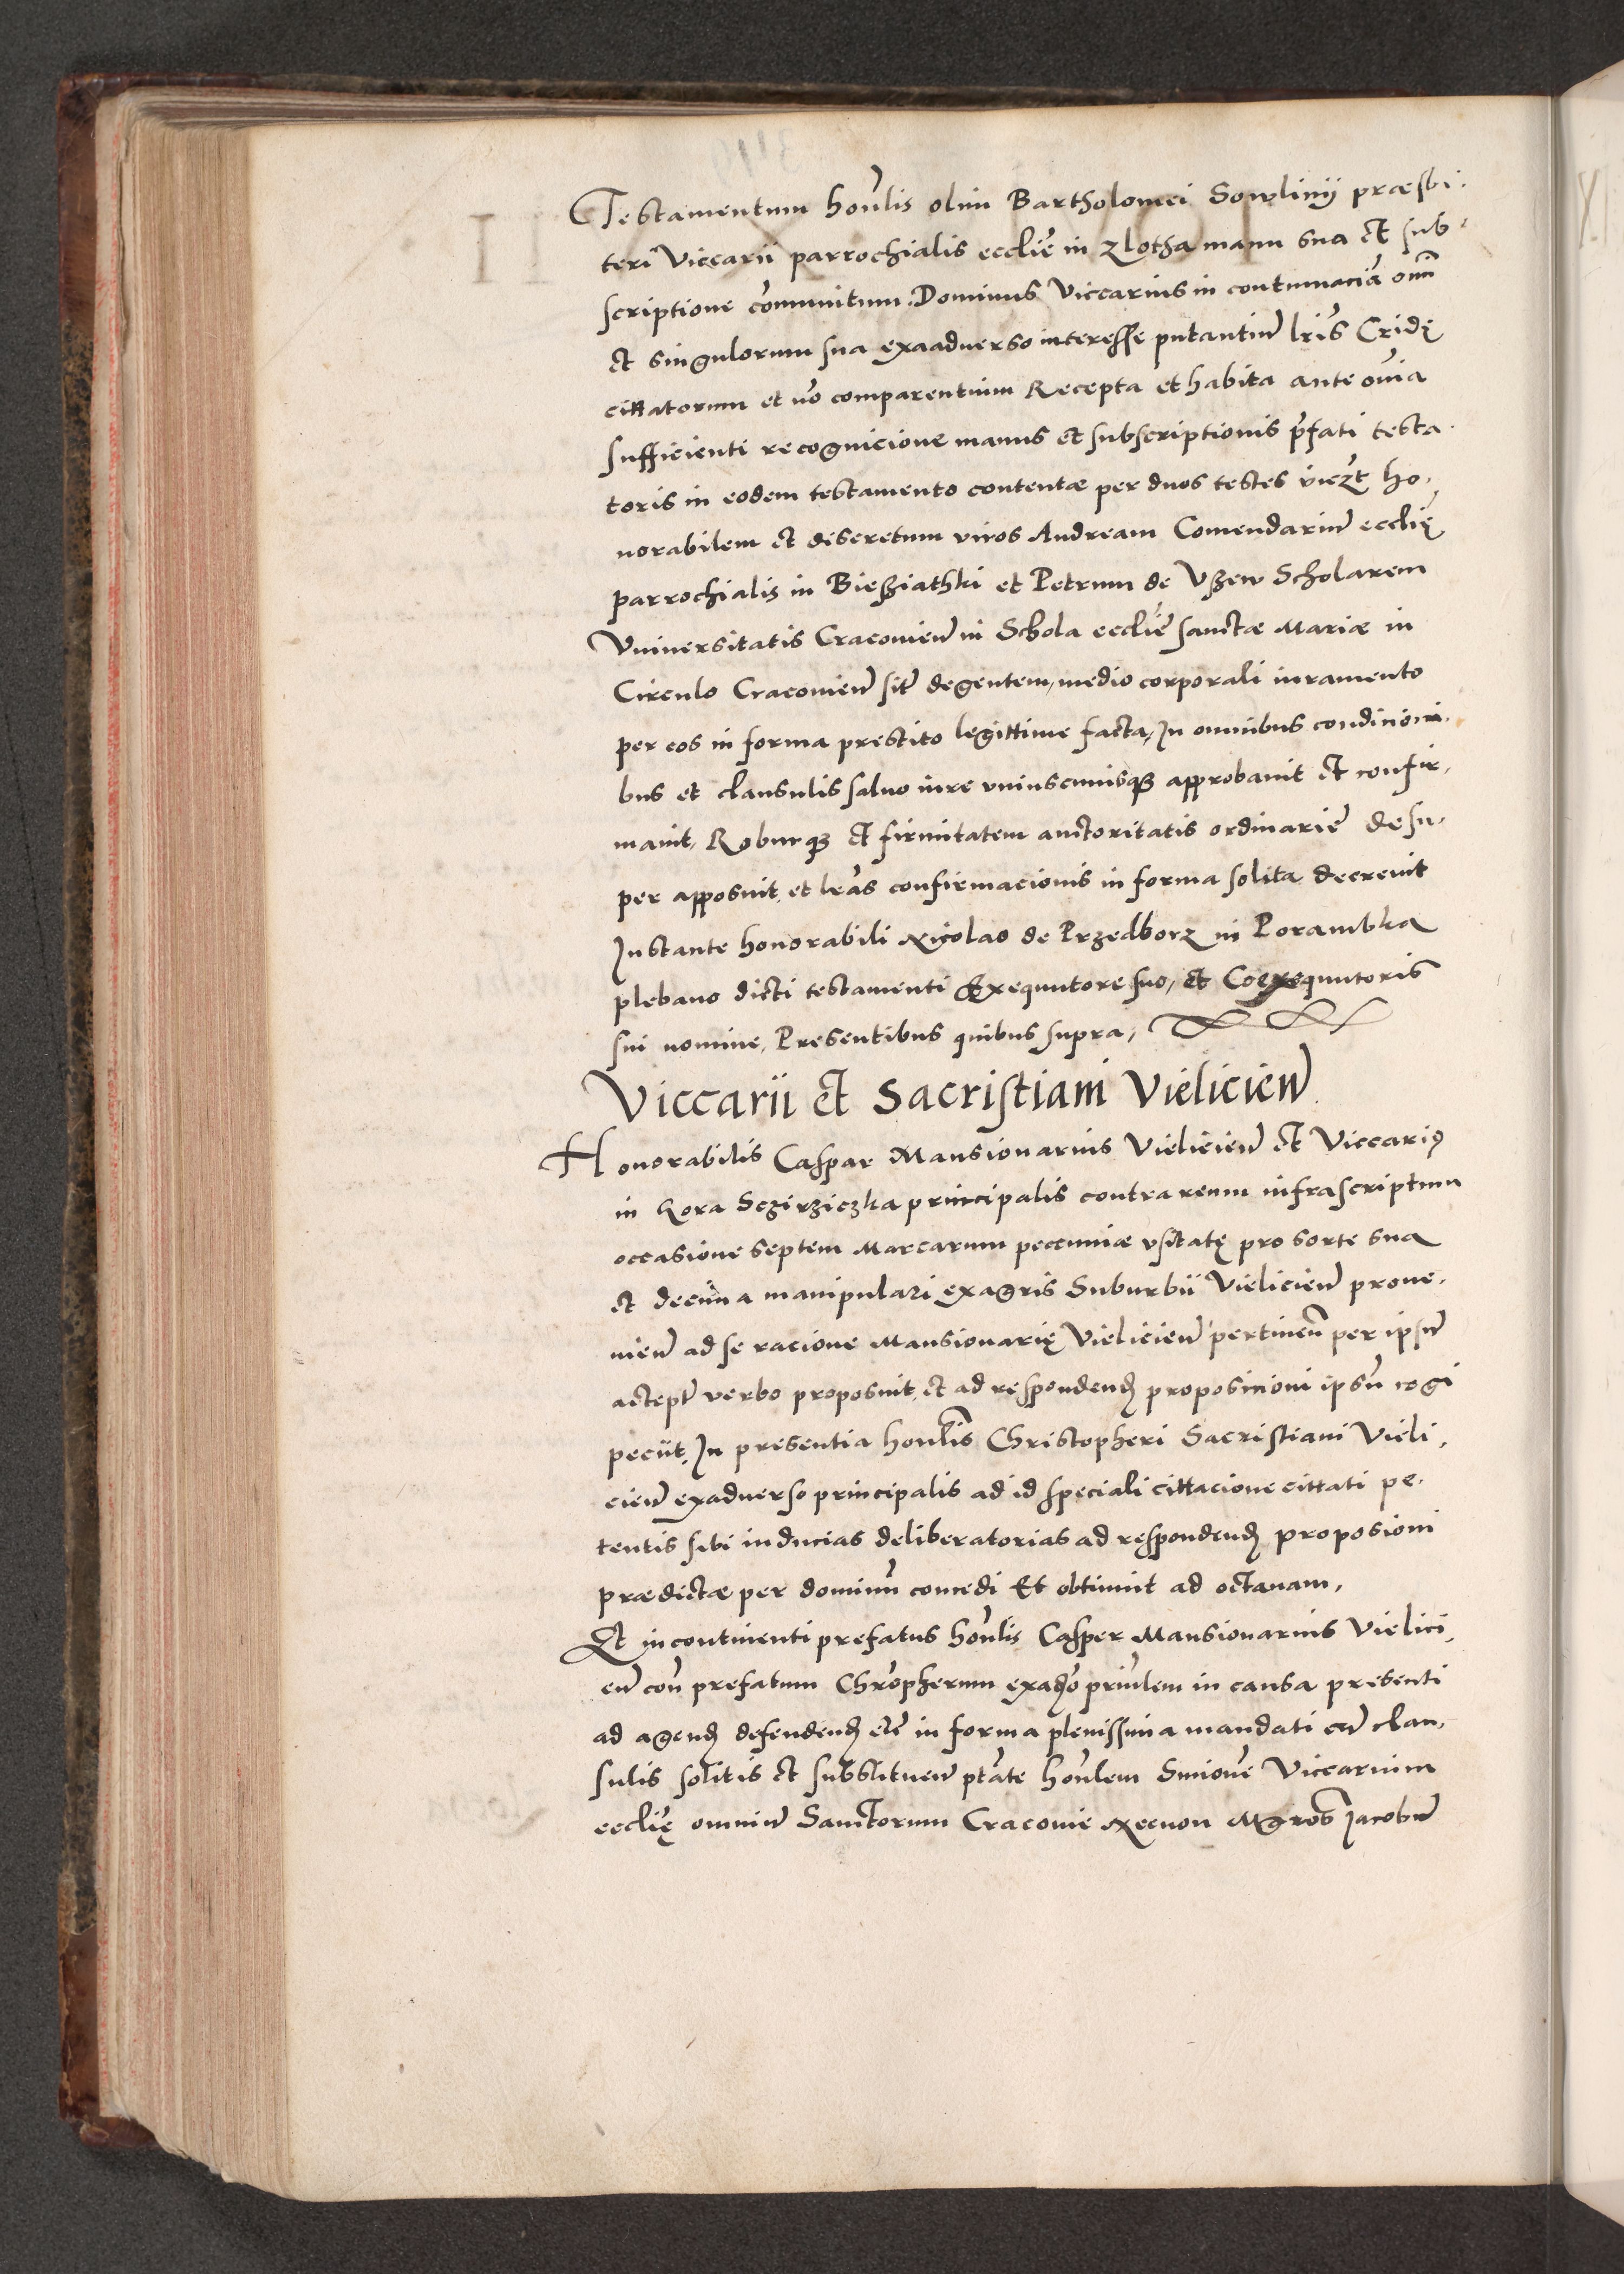 Testamentum hon̄lis olim Bartholomei Sowlinij præsbi-
teri Viccarii parrochialis eccliē in Zlotha manu sua et sub-
scriptione cōmunitum. Dominus Viccarius in contumaciā om̄
et singulorum sua exaaduerso interesse putantiū lrīs Cridę
cittatorum et nō comparentium Recepta et habita ante om̄ia
sufficienti recognicione manus et subscriptionis p̄fati testa-
toris in eodem testamento contentæ per duos testes viczt ho-
norabilem et discretum viros Andream Comendariū ecclię
parrochialis in Biesziathki et Petrum de Vszew Scholarem
Vniuersitatis Cracouieñ in Schola eccliē sanctæ Mariæ in
Circulo Cracouieñ sitę degentem, medio corporali iuramento
per eos in forma prestito legittime facta, In omnibus condicioni-
bus et clausulis saluo iure vniuscuiusqȝ approbauit et confir-
mauit, Roburqȝ et firmitatem auctoritatis ordinariē desu-
per apposuit, et lrās confirmacionis in forma solita decreuit
Instante honorabili Nicolao de Przedborz in Porambka
plebano dicti testamenti Exequutore suo, et Coexequutoris
sui nomine, Presentibus quibus supra,
Viccarii et Sacristiani Vielicieñ
Honorabilis Caspar Mansionarius Vielicieñ et Viccariꝰ
in Gora Sczirziczka principalis contra reum infrascriptum
occasione septem Marcarum peccuniæ vsitatę pro sorte sua
et decima manipulari ex agris Suburbii Vielicieñ proue-
nieñ ad se racione Mansionarię Vielicieñ pertineñ per ipsū
accept̄ verbo proposuit, et ad respondendȝ proposicioni ipsū cogi
peciit, In presentia hon̄lis Christopheri Sacristiani Vieli-
cieñ exaduerso principalis ad id speciali cittacione cittati pe-
tentis sibi inducias deliberatorias ad respondendȝ proposioni
prædictæ per dominū concedi Et obtinuit ad octauam,
Et in continenti prefatus hon̄lis Casper Mansionarius Vielici-
eñ con̄ prefatum Chrōpherum exad̄o prin̄lem in causa presenti
ad agendȝ defendendȝ etc̄ in forma plenissima mandati cū clau-
sulis solitis et substituen̄ ptāte hon̄lem Simonē Viccarium
ecclię omniū Sanctorum Cracouie Necnon Mgrōs Jacobū